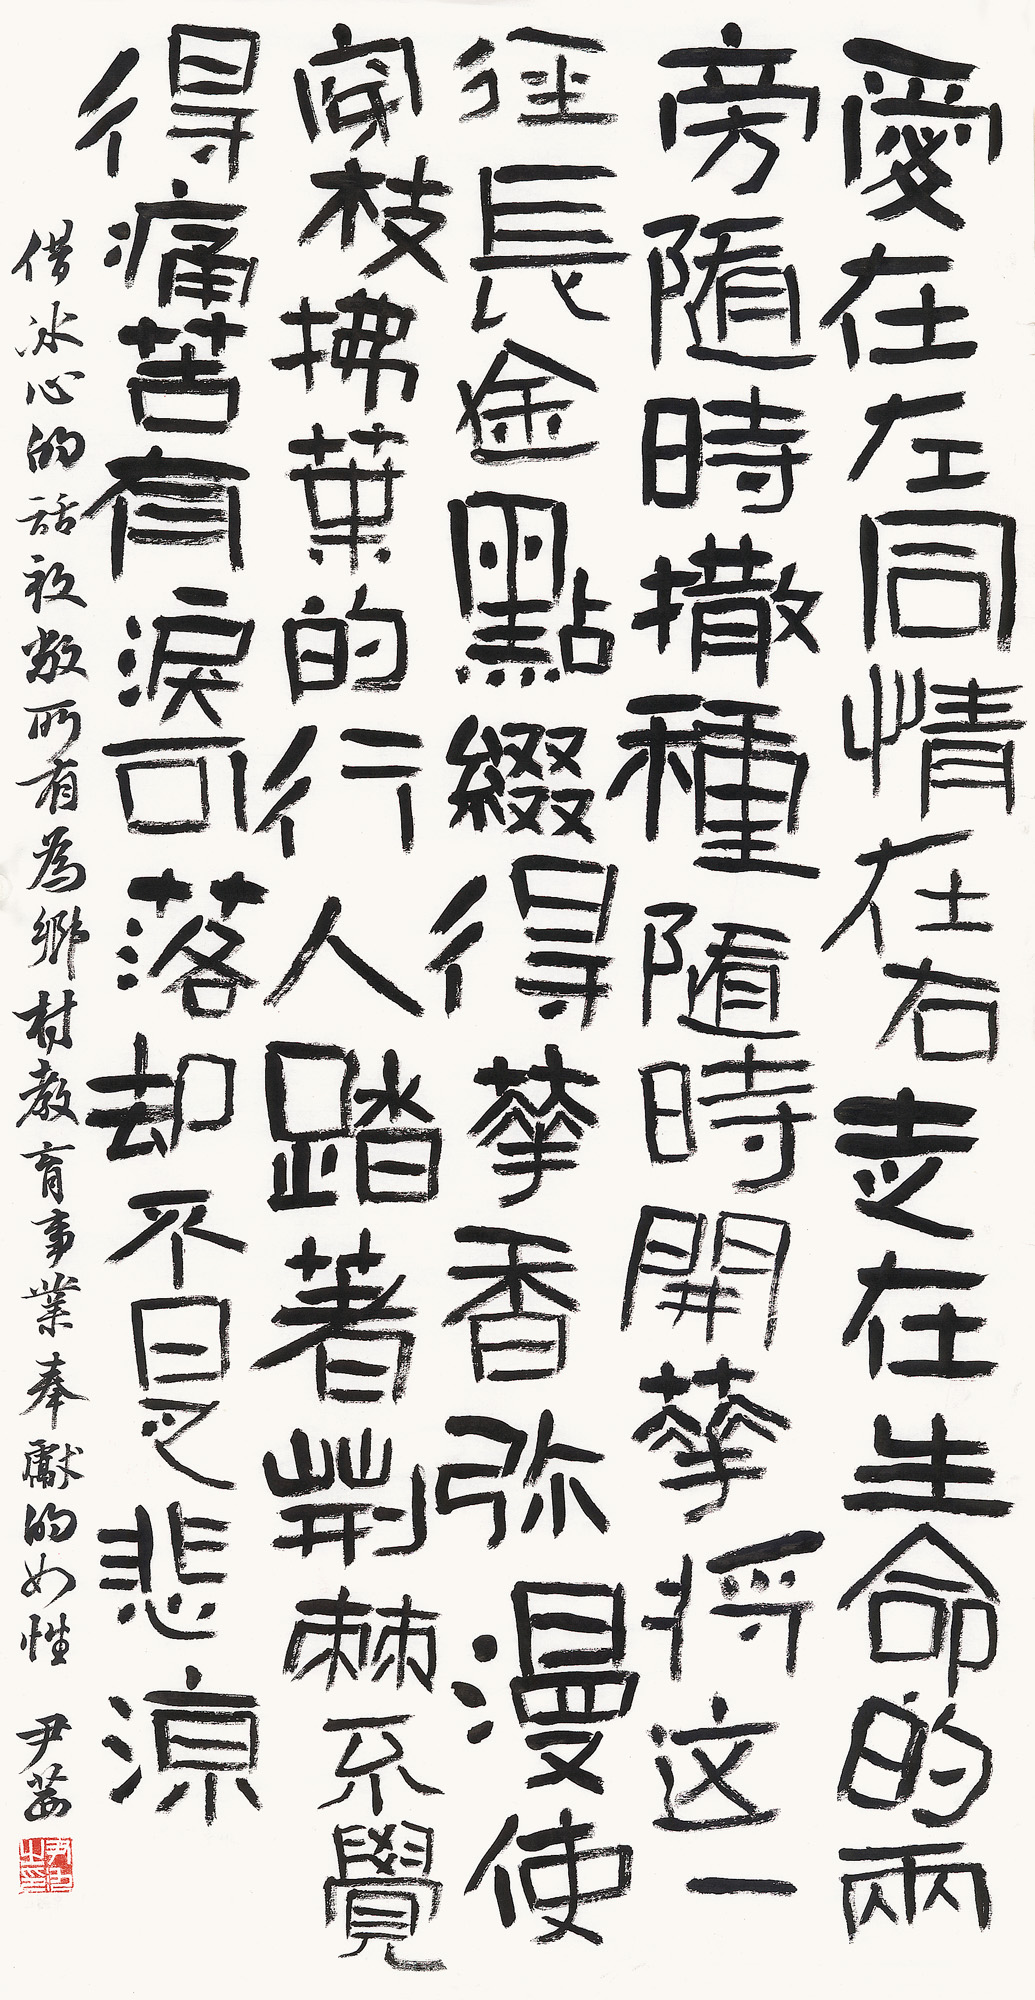 愛在左同情在右走在生命的兩
旁隨時撒種隨時開華將这一
徑長金點綴得華香弥漫使
穿枝拂葉的行人踏著荊棘不覺
得痛苦有淚可落却不是悲涼
借冰心的話致敬所有為鄉村教育事業奉獻的女性 尹茜